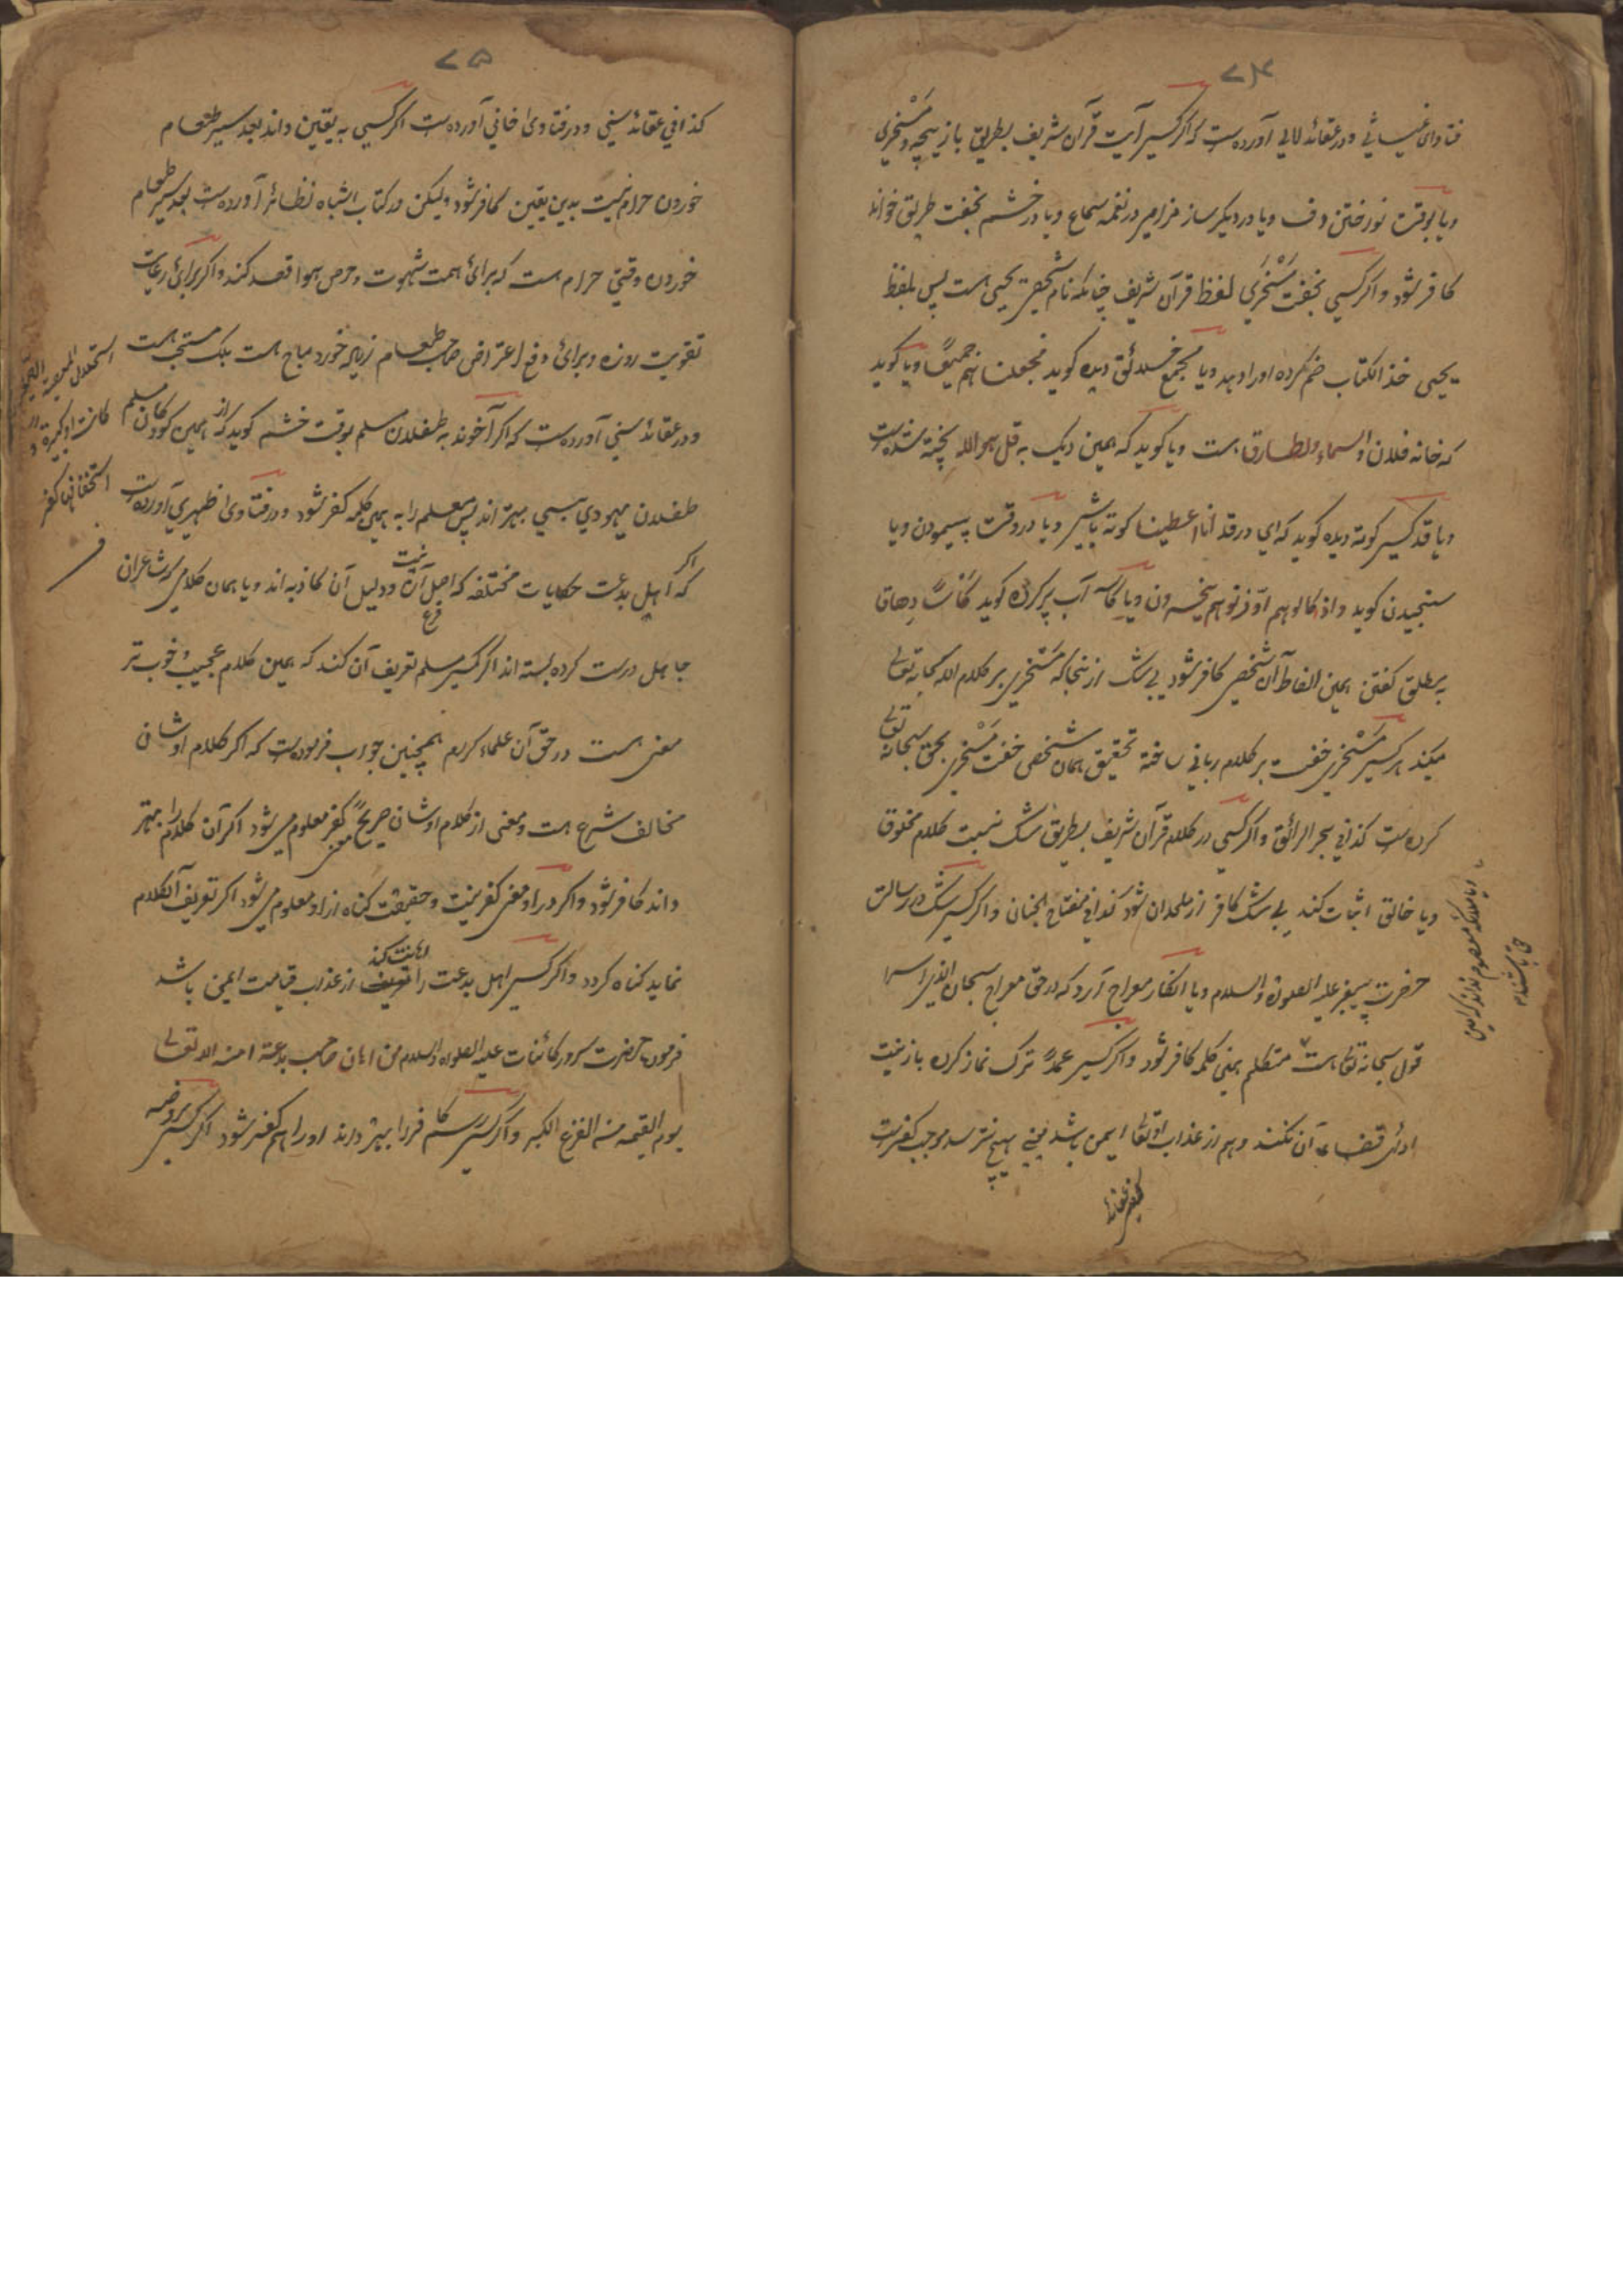 ۷۴
فتاوای غیاثی و در عقائد لالی آورده‌ست که اگر کسیر آیت قرآن شریف بطریق بازیچه و مَسْخری
ویا بوقت نورختن دف ویا در دیگر ساز مزامیر در نغمه سماع ویا در خشم بخفت طریق خواند
کافر شود و اگر کسی بخفت مَسْخری لفظ قرآن شریف چنانکه نام شخصی یحیی هست پس بلفظ
یحیی خذ الکتاب ضم کرده اورا دهد ویا مجمع خلائق دیده کوید فجعلناهم جمیعًا ویا کوید
که خانه فلان والسماء والطارق هست ویا کوید که همین دیک به قل هو الله پخته شده‌ست
ویا قد کسیر کوته دیده کوید که ای در قد انا اعطینا کوته باشیر ویا در وقت پیمودن ویا
سنجیدن کوید واذا کالوهم او زنوهم یخسرون ویا کاسه آب پر کرده کوید کاسًا دهاقا
به مطلق کفتن همین الفاظ آن شخص کافر شود بی شک از ینجا که مَسْخری بر کلام الله سبحانه تعالی
میکند هر کسیر مَسْخری خفت بر کلام ربانی ساخته تحقیق همان شخص خفت مَسْخری بحق سبحانه تعالی
کرده‌ست کذا فی بحر الرائق و اگر کسی در کلام قرآن شریف بطریق شک نسبت کلام مخلوق
ویا خالق اثبات کند بی شک کافر از ملحدان شود کذا فی مفتاح الجنان و اگر کسیر شک در رسالت
حضرت پیغمبر علیه الصلوة والسلام ویا انکار معراج آرد که در حق معراج سبحان الذی اسرا
قول سبحانه تعالی هست متکلم بهمنی کلمه کافر شود و اگر کسیر عمدًا ترک نماز کرده باز نیت
ادائ قضاء آن نکند و هم از عذاب او تعالی ایمن باشد یعنی هیچ نترسد موجب کفرست
ویا ملائکه معصوم نداند
۷۵
کذا فی عقائد سنی و در فتاوی خانی آورده‌ست اگر کسی به یقین داند بعد سیر طعام
خوردن حرام نیست بدین یقین کافر شود ولیکن در کتاب اشباه نظائر آورده‌ست بعد سیر طعام
خوردن وقتی حرام هست که برائ همت شهوت و حرص هوا قصد کند و اگر برائ رعایت
تقویت روزه و برائ دفع اعتراض صاحب طعام زیاده خورد مباح هست بلک مستحب هست
و در عقائد سنی آورده‌ست که اگر آخوند به طفلان مسلم بوقت خشم کوید که از همین کودکان مسلم
طفلان یهودی بسی بهتر اند پس معلم را به همین کلمه کفر شود و در فتاوی ظهیری آورده‌ست
که اگر اهل بدعت حکایات مختلفه که اصل آن نیست و دلیل آن کاذبه اند ویا همان کلامی که شاعران
جاهل درست کرده بسته اند اگر کسیر مسلم تعریف آن کند که همین کلام عجیب و خوب تر
معنی هست در حق آن علماء کرام همچنین جواب فرموده‌ست که اگر کلام اوشان
مخالف شرع هست و معنی از کلام اوشان صریحًا کفر معلوم می شود اگر آن کلام را بهتر
داند کافر شود و اگر در او معنی کفر نیست و حقیقت کناه از او معلوم می شود اگر تعریف آنکلام
نماید کناه کردد و اگر کسیر اهل بدعت را اهانت کند از عذاب قیامت ایمن باشد
فرموده حضرت سرور کائنات علیه الصلوة والسلام من اهان صاحب بدعة امنه الله تعالی
یوم القیمه من الفزع الاکبر و اگر کسیر رسم کافر را بهتر داند اورا هم کفر شود اگر کسیر بروضه
استحلال المعصیة
کانت او کبیرة و
استخفافها کفر